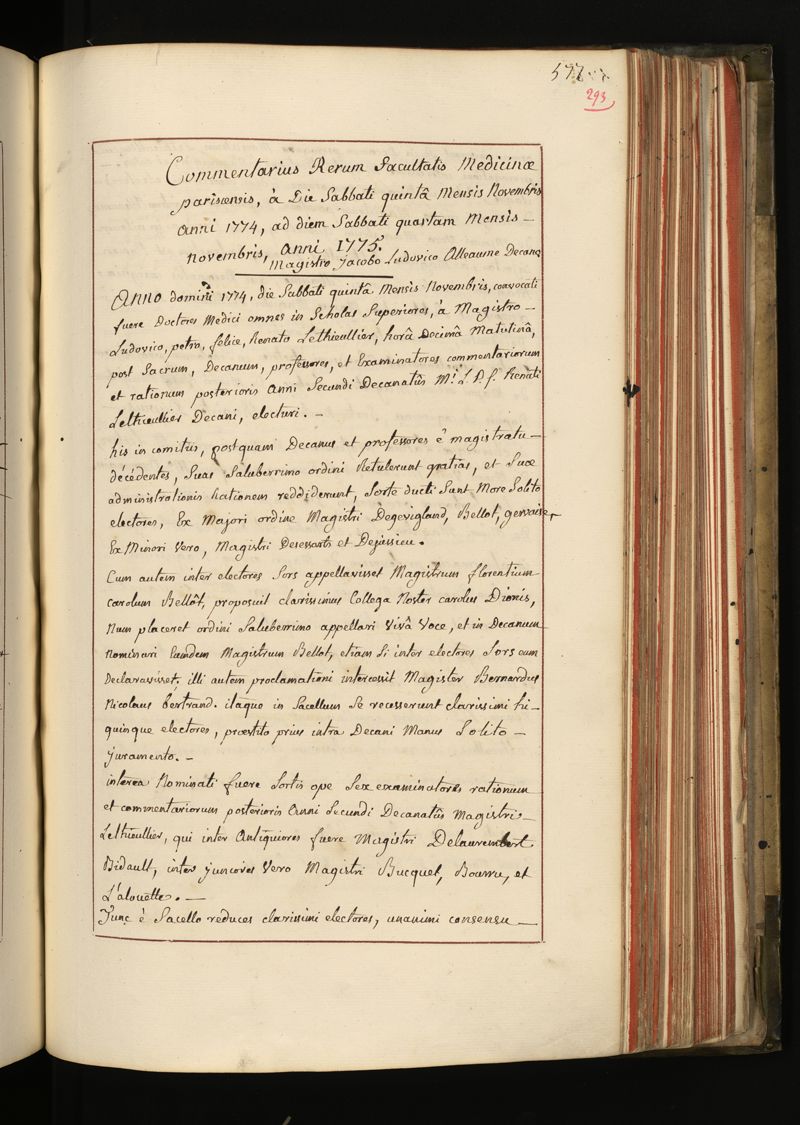 577
293
Commentarius Rerum Facultatis Medicinæ
parisiensis, à Die Sabbati quintâ Mensis Novembris
Anni 1774, ad diem Sabbati quartam Mensis –
novembris, anni 1775.
Magistro Jacobo Ludovico Alleaume Decano
Anno domini 1774, die Sabbati quintâ Mensis Novembris, convocati
fuere Doctores Medici omnes in Scholas Superiores, à Magistro –
Ludovico, petro, felice, Renato Lethieullier, horâ Decimâ Matutinâ,
post Sacrum, Decanum, professores, et Examinatores commentariorum
et rationum posterioris Anni Secundi Decanatûs Mi. L. P. f. Renati
Lethieullier Decani, electuri. –
his in comitiis, postquam Decanus et professores è magistratu –
décédentes, Suas Saluberrimo ordini Retulerunt gratias, et Suæ
administrationis Rationem reddiderunt, Sorte ducti Sunt More Solito
electores, Ex Majori ordine Magistri Degevigland, Bellot, gervaise,
Ex Minori Vero, Magistri Desessarts et Dejussieu.
Cum autem inter electores Sors appellavisset Magistrum florentium
carolum Bellôt, proposuit clarissimus Collega Noster carolus Dionis,
Num placeret ordini Saluberrimo appellari Vivâ Voce, et in Decanum
nominari Eumdem Magistrum Bellot, etiam Si inter electores Sors eum
Declaravisset; illi autem proclamationi intercessit Magister Bernardus
Nicolaus bertrand. itaque in Sacellum Se recesserunt clarissimi hi –
quinque electores, præstito prius intra Decani Manus Solito –
juramento. –
interea Nominati fuere Sortis ope Sex examinatores rationum
et commentariorum posterioris Anni Secundi Decanatûs Magistri –
Lethieullier, qui inter Antiquiores fuere Magistri Delaurembert
Bidault, inter juniores Vero Magistri Bucquet, Bourru, et
L'alouette. –
Tunc è Sacello reduces clarissimi electores, unanimi consensu –